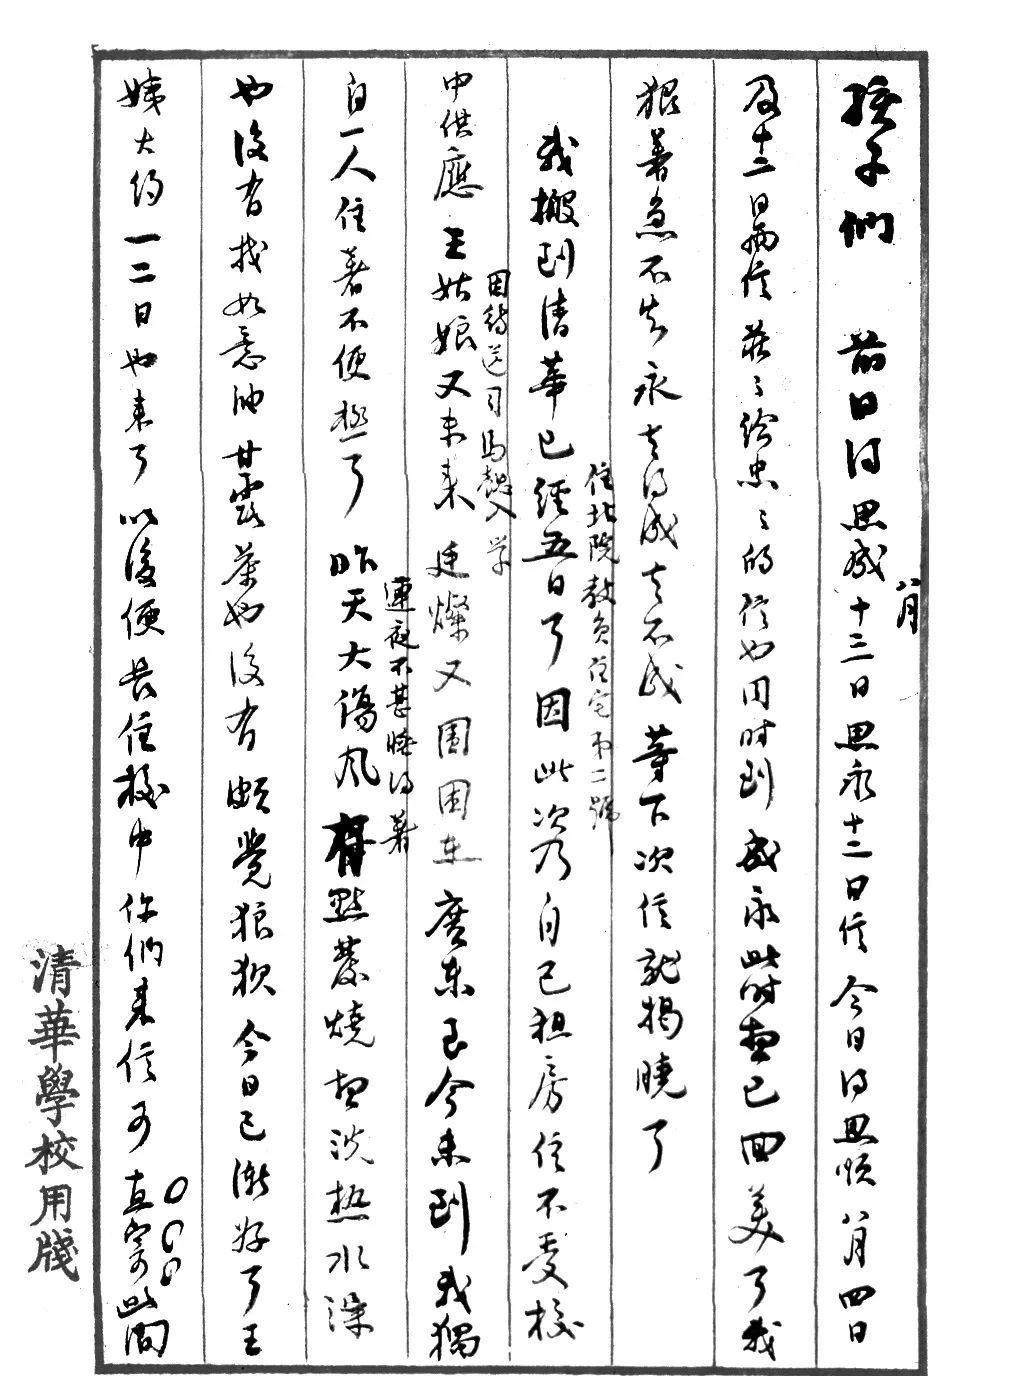 孩子們　前日得思成八月十三日思永十二日信今日得思順八月四日
及十二日兩信莊々給忠々的信也同時到成永此時想已回美了我
狠著急不知永去得成去不成等下次信就揭曉了
住北院教員住宅第二號
我搬到清華已經五日了因此次乃自己租房住不受校
因待送司馬懿入學
中供應王姑娘又未來廷燦又圍困在廣東至今未到我獨
連夜不甚睡得著
自一人住著不便極了　昨天大傷風有點發燒想洗熱水澡
也沒有找如意油甘露茶也沒有頗覺狼狽今日已漸好了王
姨大約一二日也來了以後便長住校中你們來信可直寄此間
清華學校用牋